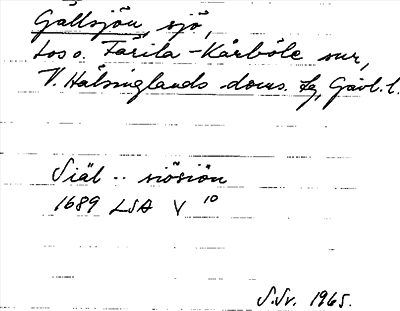 Gällsjön, sjö,
Los o. Färila-Kårböle snr,
V. Hälsinglands doms. tg, Gävl. l.
Siäl .. siösiön
1689 LSA V 10
S.Sv. 1965.